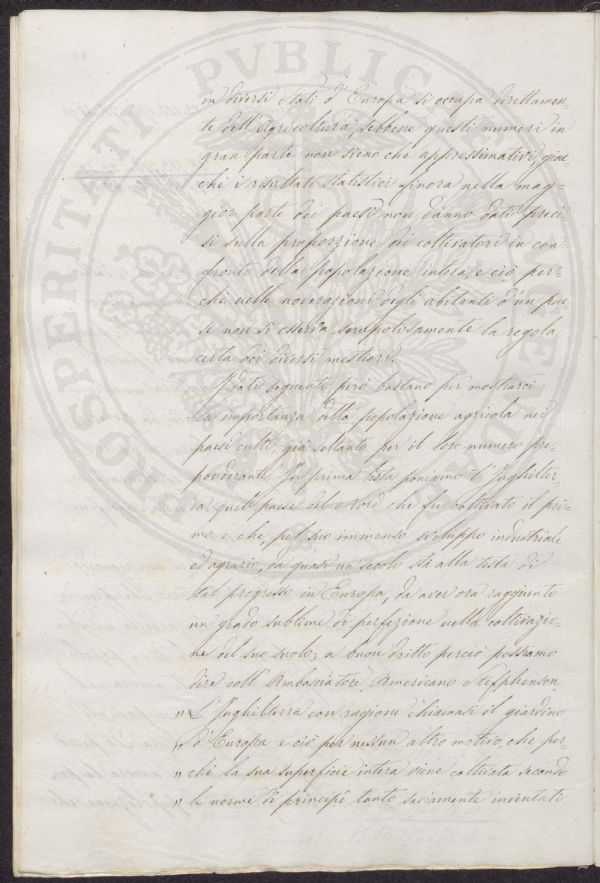 in diversi Stati d'Europa si occupa direttamen-
te dell'Agricoltura, sebbene questi numeri in
gran parte non sieno che approssimativi, giac-
chè i resultati statistici finora nella mag-
gior parte dei paesi non dánno dati preci-
si sulla proporzione dei coltivatori in con-
fronto della popolazione intera, e ciò per-
chè nelle noverazioni degli abitanti d'un pae-
se non si osserva scrupolosamente la regola
certa dei diversi mestieri.
I dati seguenti però bastano per mostrarci
la importanza della popolazione agricola nei
paesi culti, già soltanto per il loro numero pre-
ponderante. In prima lista poniamo l'Inghilter-
ra, quel paese del Nord che fu coltivato il pri-
mo, e che, pel suo immenso sviluppo industriale
ed agrario, da quasi un secolo stà alla testa di
tal progresso in Europa, da aver ora raggiunto
un grado sublime di perfezione nella coltivazio-
ne del suo suolo; a buon dritto perciò possiamo
dire coll'Ambasciatore Americano Stepphenson
"L'Inghilterra con ragione chiamasi il giardino
" d'Europa e ciò per nessun altro motivo, che per-
" chè la sua superficie intera viene coltivata secondo
" le norme di principî tanto saviamente inventati
PROSPERITATI PVBLICAE